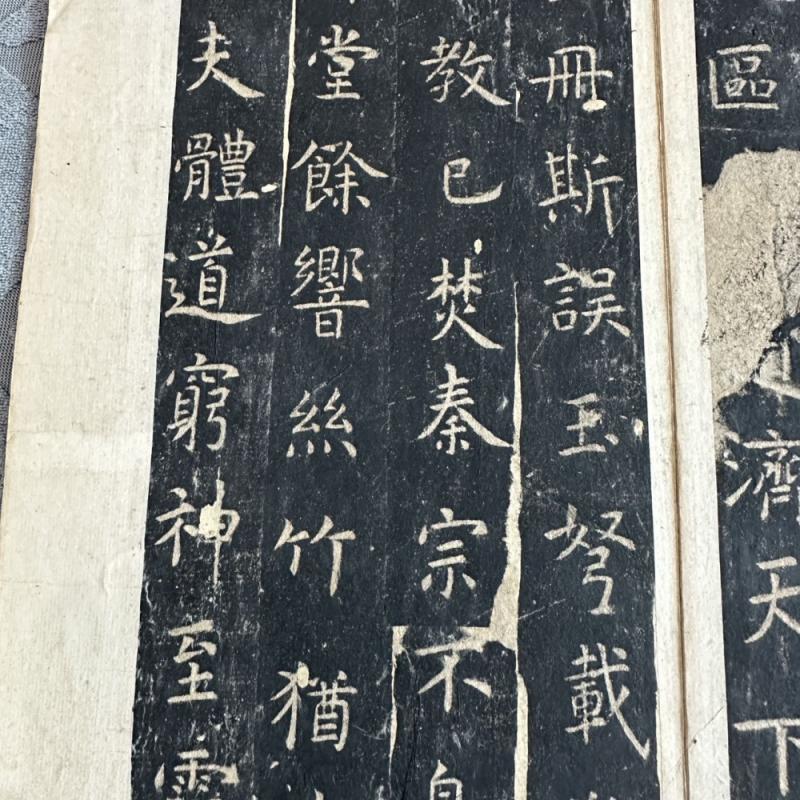 區濟天下
冊斯誤玉弩載
教已焚秦宗不
堂餘響絲竹猶
夫體道窮神至